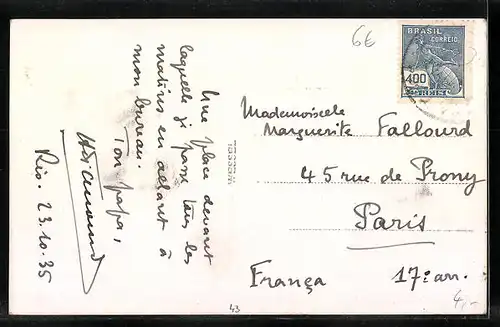 6E
BRASIL
CORREIO
400
Une place devant
laquelle je passe tous les
matins en allant à
mon bureau.
Ton papa,
Rio. 23.10.35
Mademoiselle
Marguerite Fallourd
45 rue de Prony
Paris
França 17e arr.
4,-
43